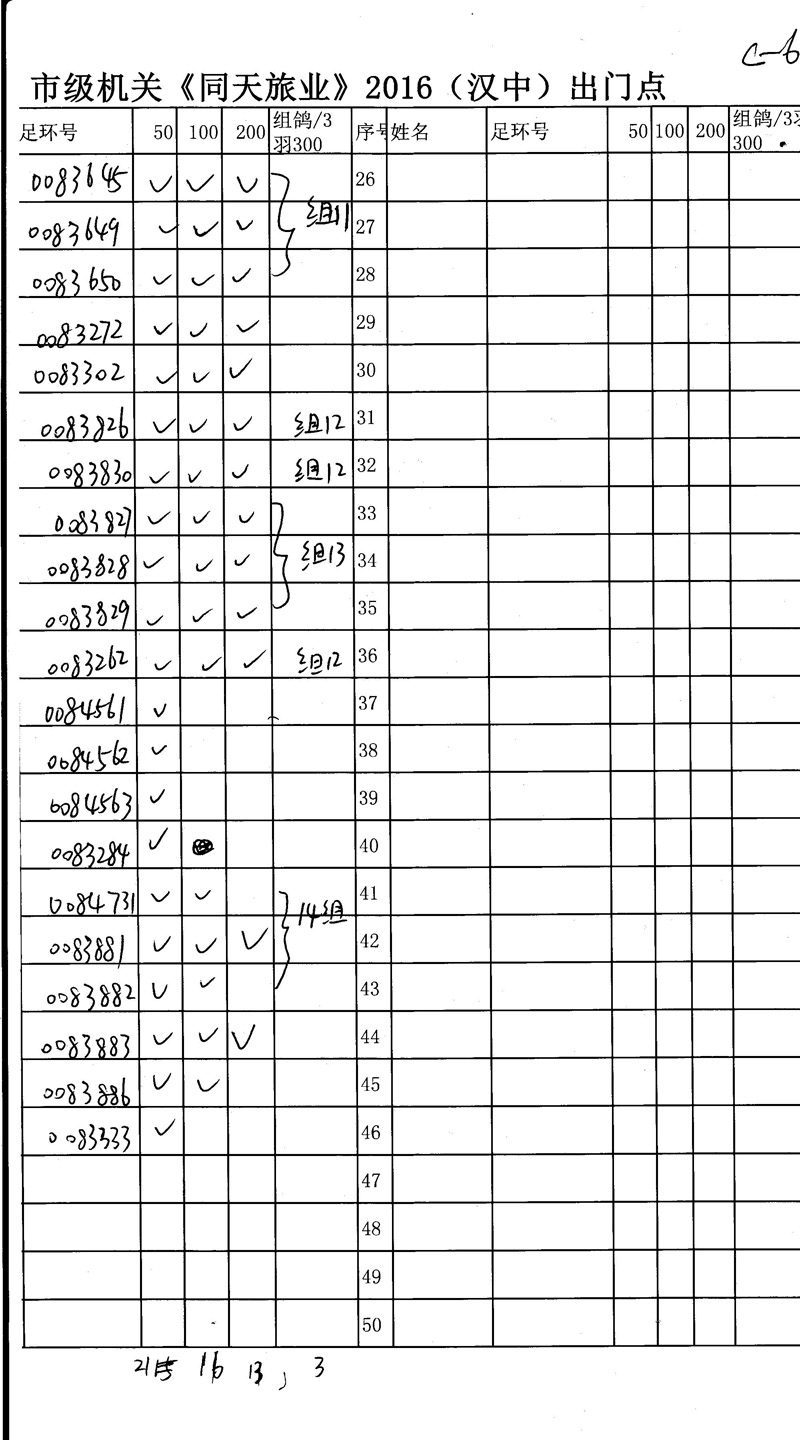 c-6
市级机关《同天旅业》2016（汉中）出门点
足环号 50 100 200 组鸽/3羽300 序号 姓名 足环号 50 100 200 组鸽/3羽300
0083645 ✓ ✓ ✓ 26
0083649 ✓ ✓ ✓ 组11 27
0083650 ✓ ✓ ✓ 28
0083272 ✓ ✓ ✓ 29
0083302 ✓ ✓ ✓ 30
0083826 ✓ ✓ ✓ 组12 31
0083830 ✓ ✓ ✓ 组12 32
0083827 ✓ ✓ ✓ 33
0083828 ✓ ✓ ✓ 组13 34
0083829 ✓ ✓ ✓ 35
0083262 ✓ ✓ ✓ 组12 36
0084561 ✓ 37
0084562 ✓ 38
0084563 ✓ 39
0083284 ✓ 40
0084731 ✓ ✓ 14组 41
0083881 ✓ ✓ ✓ 42
0083882 ✓ ✓ 43
0083883 ✓ ✓ ✓ 44
0083886 ✓ ✓ 45
0083333 ✓ 46
47
48
49
50
21 16 13, 3